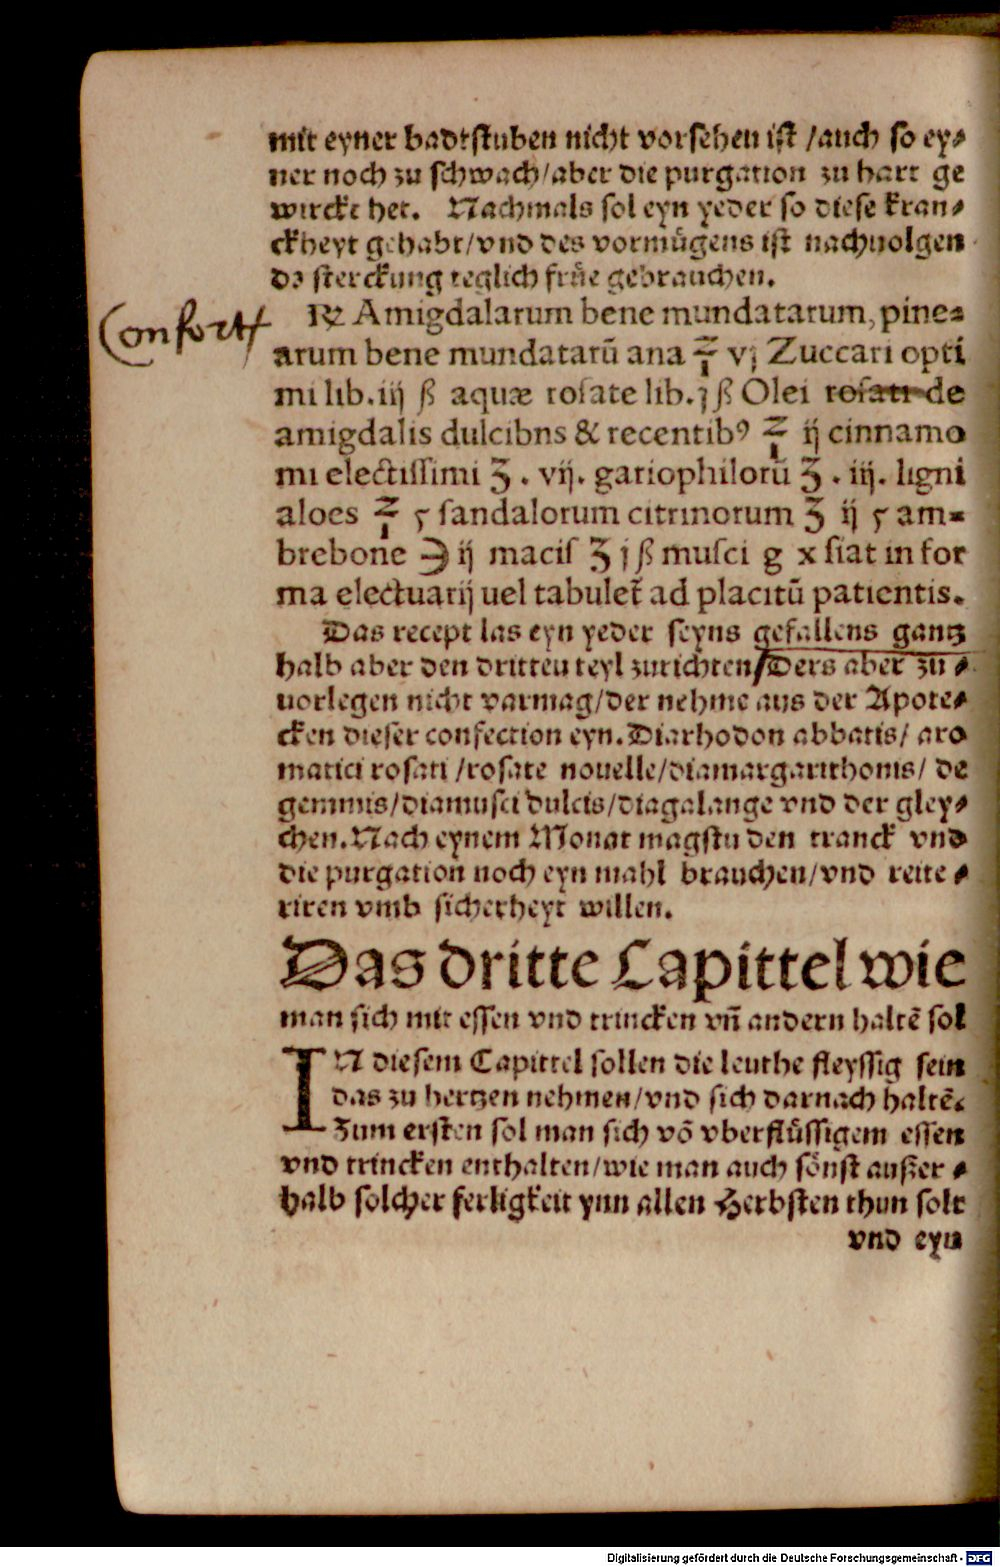 mit eyner badtstuben nicht vorsehen ist /auch so ey⸗
ner noch zu schwach/aber die purgation zu hart ge
wirckt het. Nachmals sol eyn yeder so diese kran⸗
ckheyt gehabt/vnd des vormůgens ist nachuolgen
də sterckung teglich frůe gebrauchen.
Confort
℞ Amigdalarum bene mundatarum, pine⸗
arum bene mundatarū ana ℥ vj Zuccari opti
mi lib. iij ß aquæ rosate lib. j ß Olei rosati de
amigdalis dulcibns & recentibꝰ ℥ ij cinnamo
mi electissimi ʒ . vij. gariophilorū ʒ . iij. ligni
aloes ℥ ɼ sandalorum citrinorum ʒ ij ɼ am⸗
brebone ℈ ij macis ʒ j ß musci g x fiat in for
ma electuarij uel tabulet̄ ad placitū patientis.
Das recept las eyn yeder seyns gefallens gantz
halb aber den dritteu teyl zurichten/Ders aber zu ⸗
uorlegen nicht varmag/der nehme aus der Apote⸗
cken dieser confection eyn. Diarhodon abbatis/ aro
matici rosati /rosate nouelle/diamargarithonis/ de
gemmis/diamusci dulcis/diagalange vnd der gley⸗
chen. Nach eynem Monat magstu den tranck vnd
die purgation noch eyn mahl brauchen/vnd reite ⸗
riren vmb sicherheyt willen.
Das dritte Capittel wie
man sich mit essen vnd trincken vñ andern haltē sol
IN diesem Capittel sollen die leuthe fleyssig sein
das zu hertzen nehmen/vnd sich darnach haltē.
Zum ersten sol man sich vō vberflůssigem essen
vnd trincken enthalten/wie man auch sōnst außer ⸗
halb solcher ferligkeit ynn allen Herbsten thun solt
vnd eyn
Digitalisierung gefördert durch die Deutsche Forschungsgemeinschaft - DFG